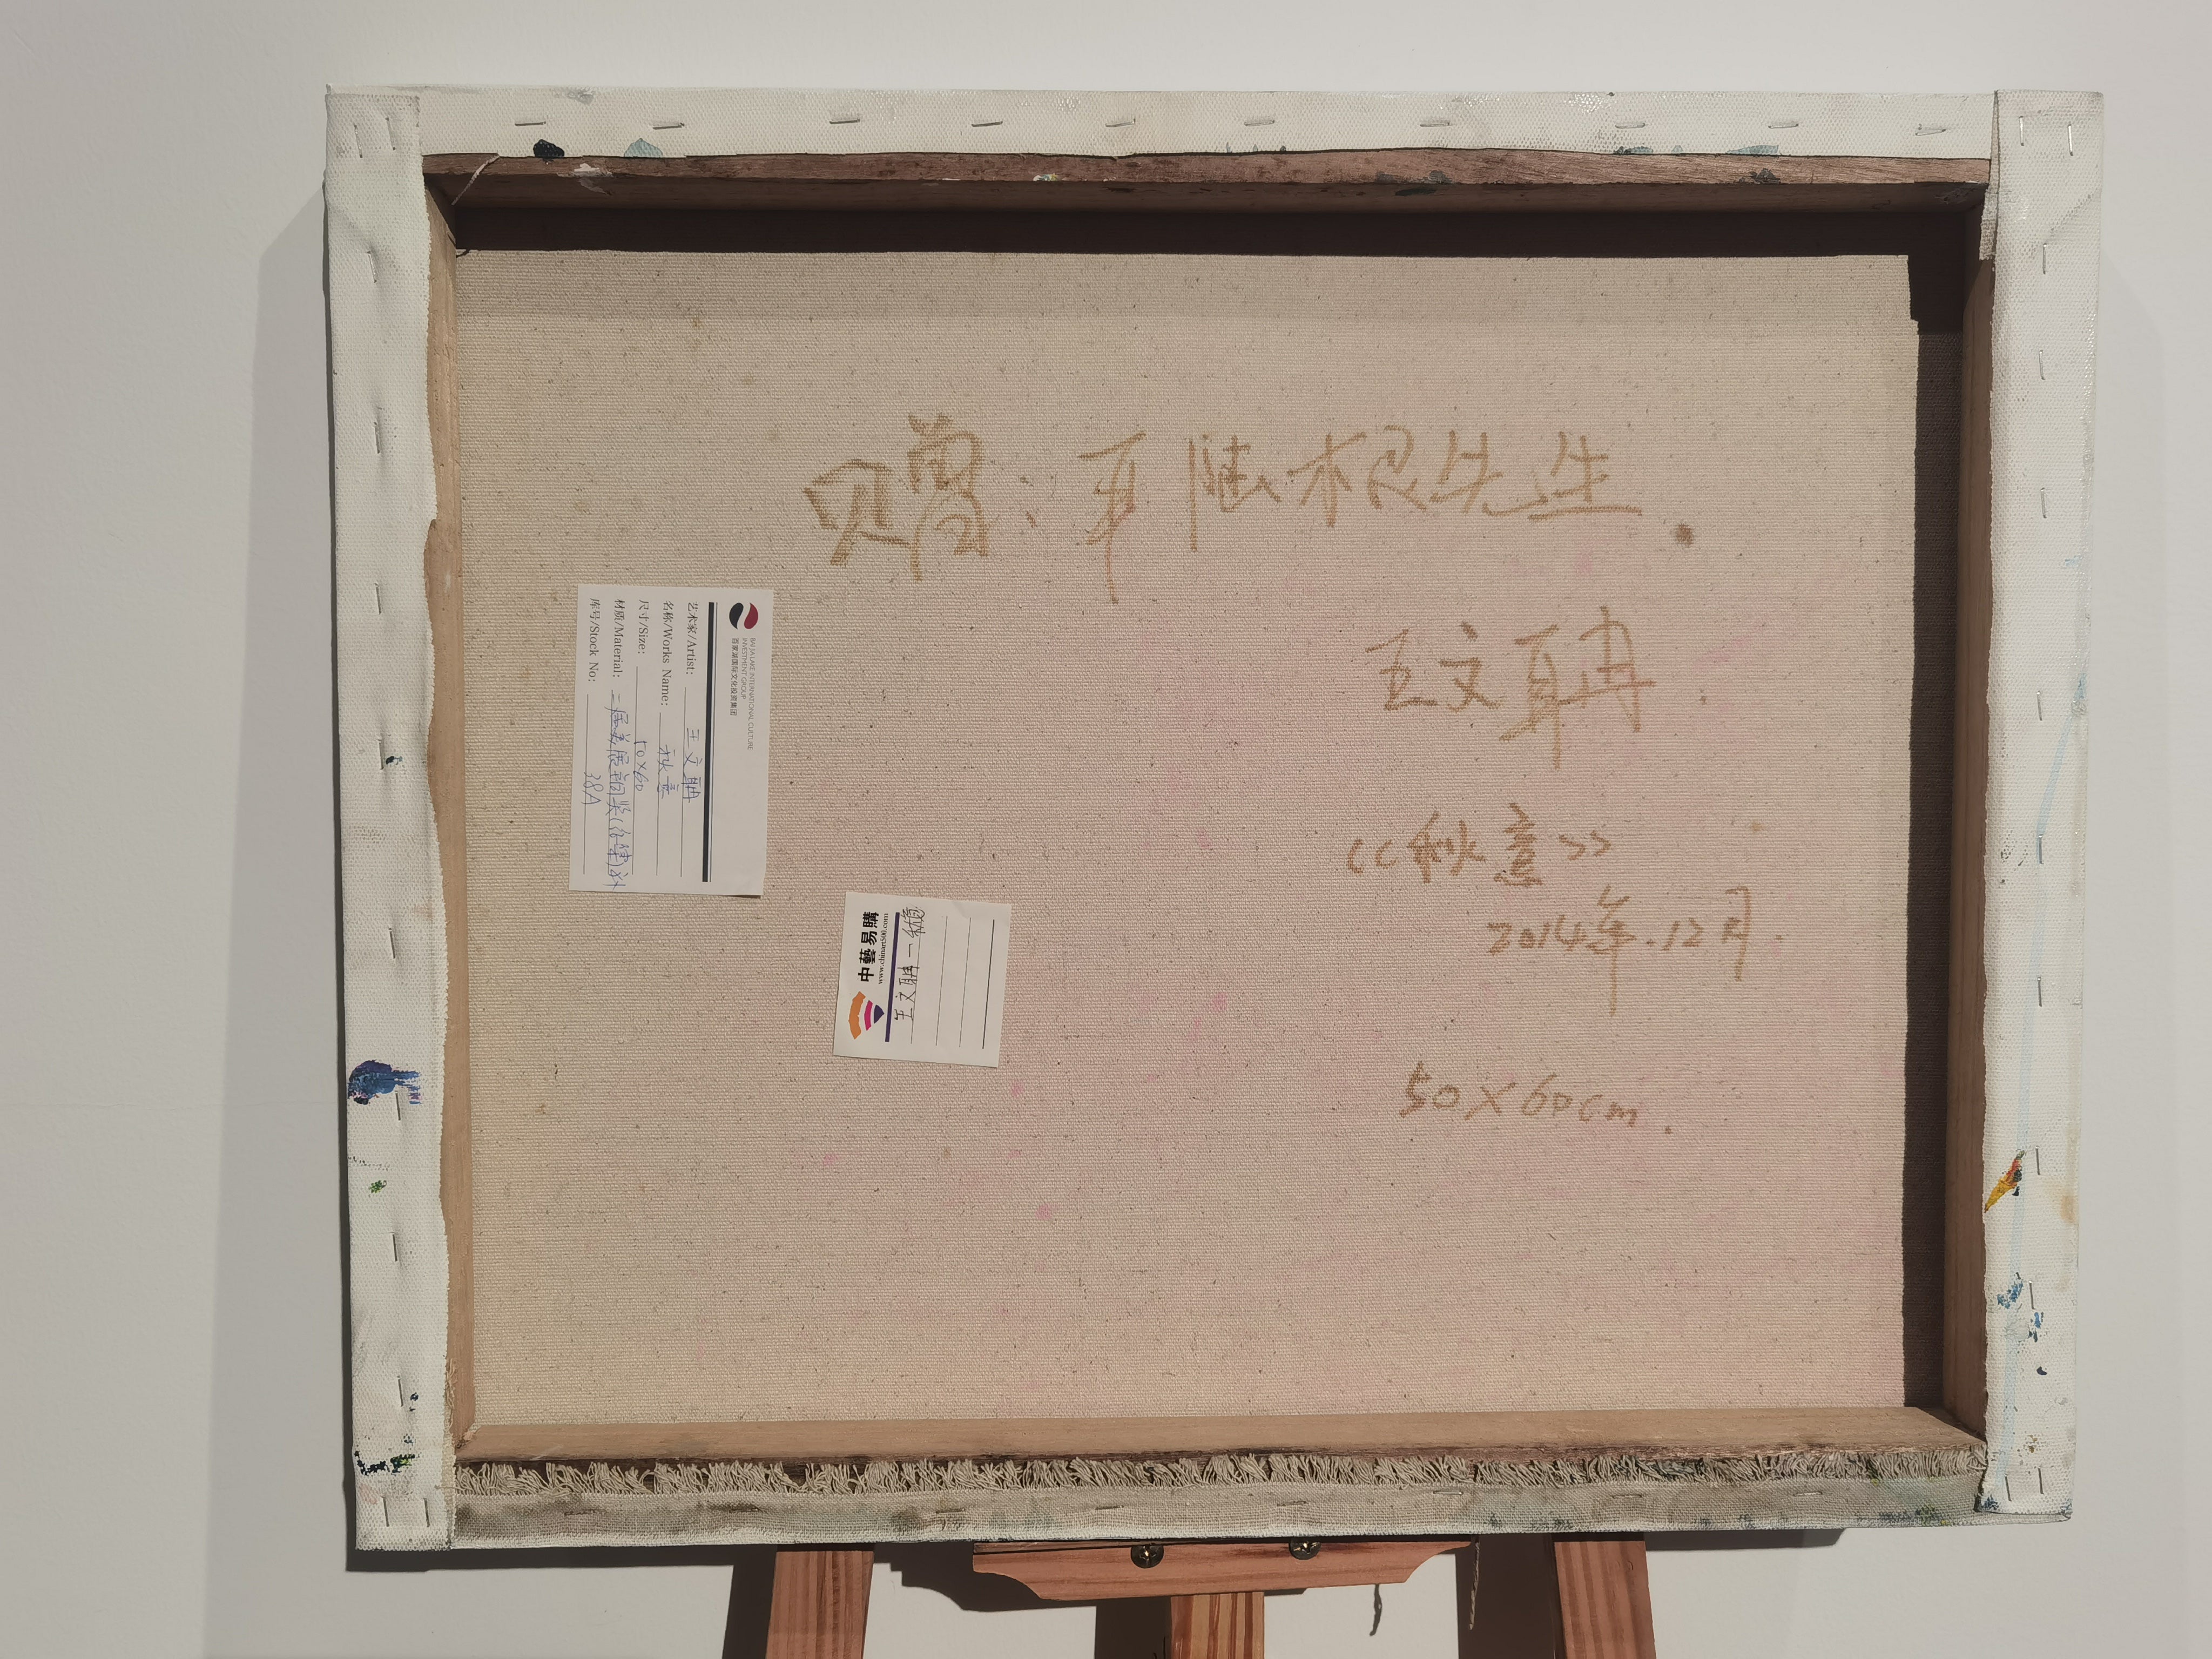 赠、耳陆根先生.
王文聃.
《秋意》
2014年.12月.
50×60cm.
BAI JIA LAKE INTERNATIONAL CULTURE
INVESTMENT GROUP
百家湖国际文化投资集团
艺术家/Artist: 王文聃
名称/Works Name: 秋意
尺寸/Size: 50×60
材质/Material: 二届美展
库号/Stock No: 38A
中藝易購
www.chinart500.com
王文聃一